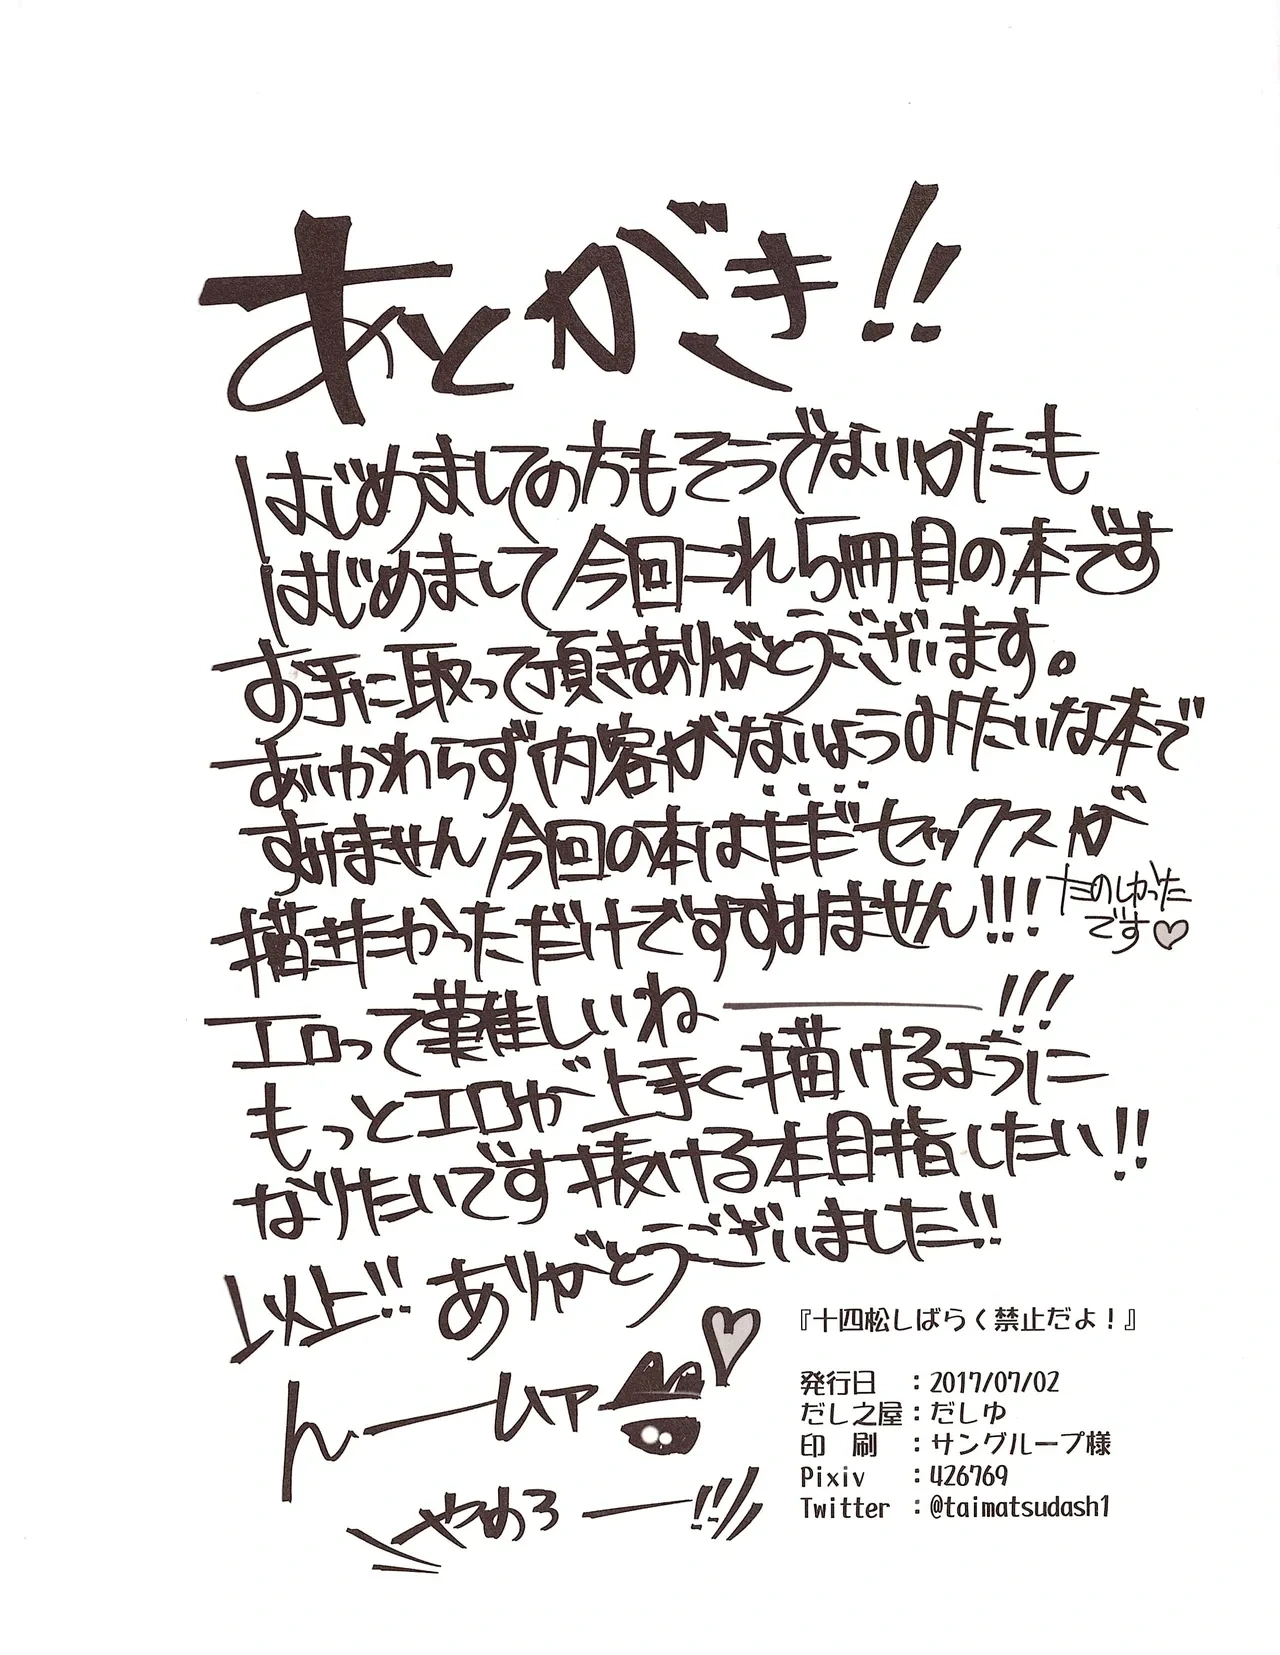 あとがき!!
はじめましての方もそうでないかたも
はじめまして今回これ5冊目の本です
お手に取って頂きありがとうございます。
あいかわらず内容がないようみたいな本で
すみません今回の本はただセックスが
描きたかっただけですすみません!!!
たのしかった
です♡
エロって難しいね———!!!
もっとエロが上手く描けるように
なりたいです抜ける本目指したい!!
以上!!ありがとうございました!!
んーームァ
やめろー!!
『十四松しばらく禁止だよ!』
発行日 :2017/07/02
だし之屋:だしゆ
印 刷 :サングループ様
Pixiv :426769
Twitter :@taimatsudash1